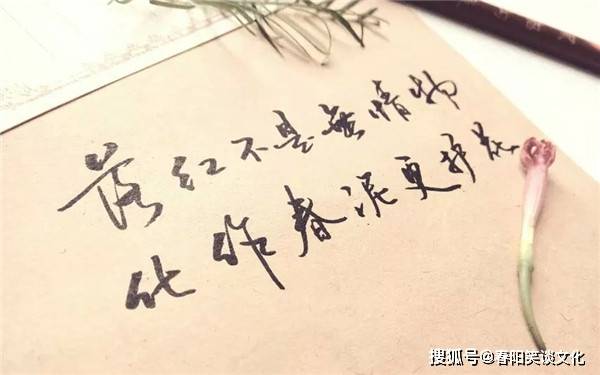 落红不是無情物
化作春泥更护花
搜狐号@春阳笑谈文化